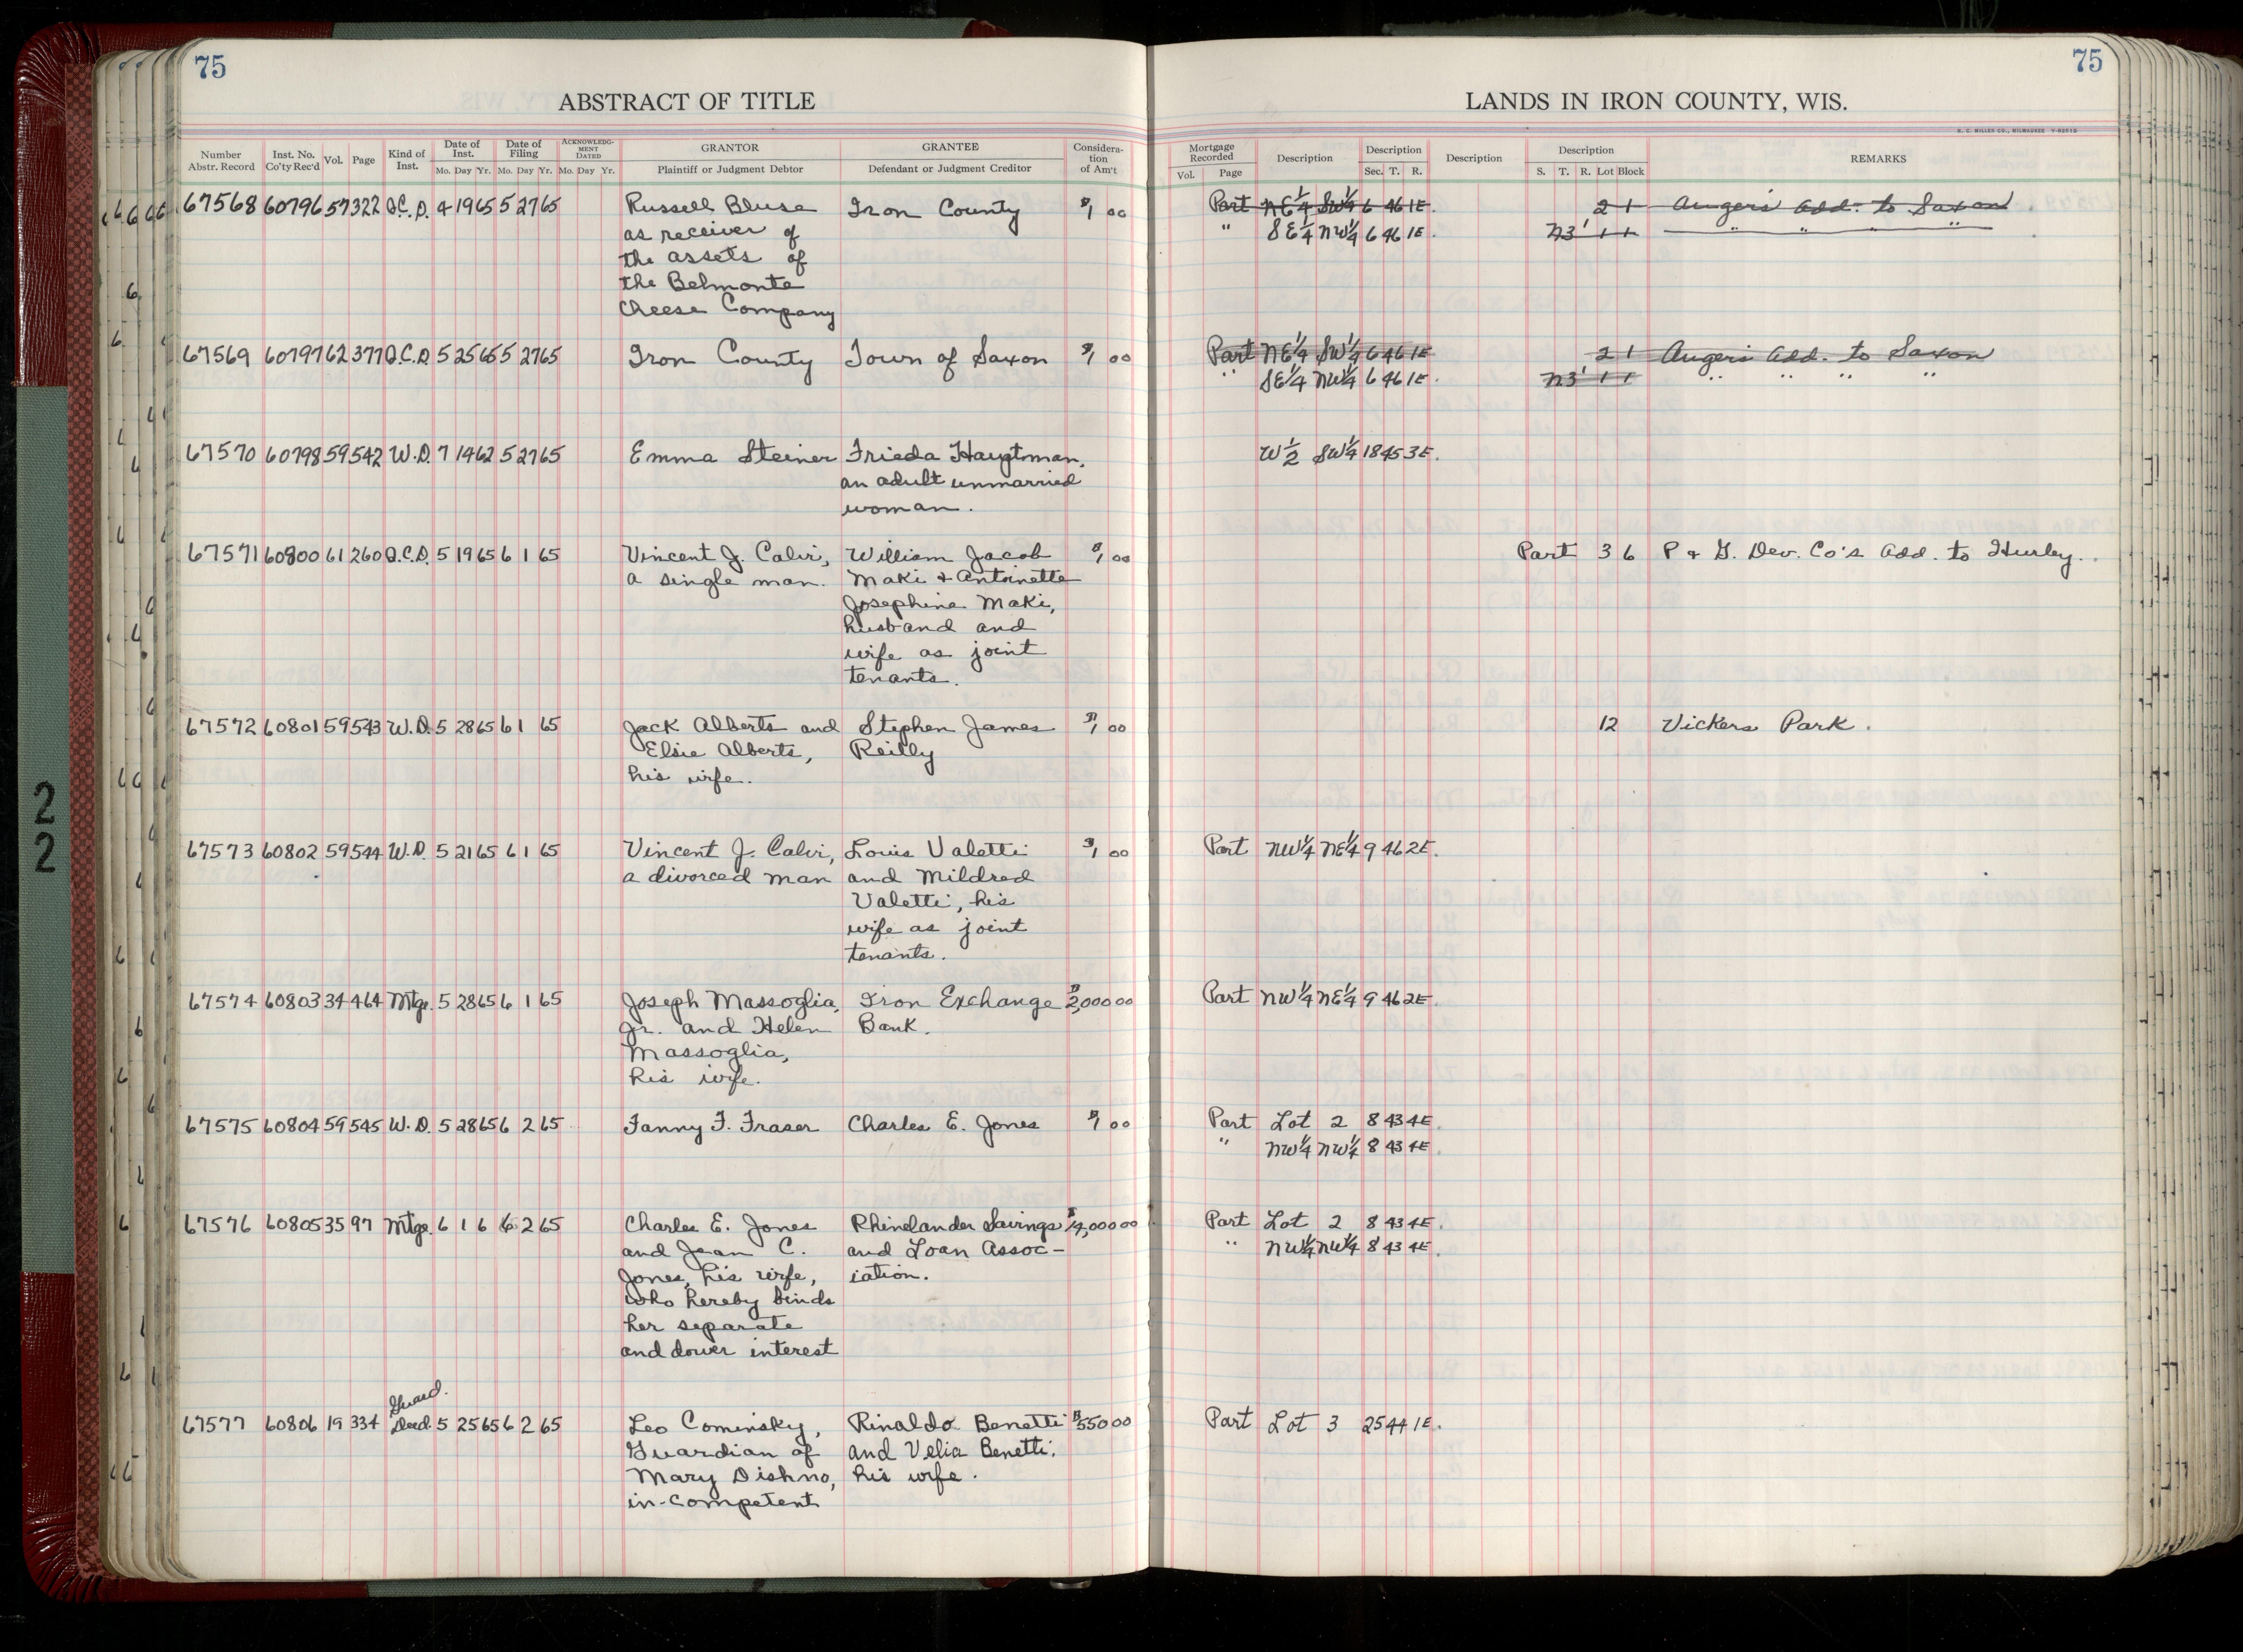 75
75
ABSTRACT OF TITLE
LANDS IN IRON COUNTY, WIS.
Number Abstr. Record Inst. No. Co'ty Rec'd Vol. Page Kind of Inst. Date of Inst. Mo. Day Yr. Date of Filing Mo. Day Yr. ACKNOWLEDG-MENT DATED Mo. Day Yr. GRANTOR Plaintiff or Judgment Debtor GRANTEE Defendant or Judgment Creditor Considera-tion of Am't Mortgage Recorded Vol. Page Description Description Sec. T. R. Description Description S. T. R. Lot Block REMARKS
67568 60796 57 322 Q.C.D. 4 19 65 5 27 65 Russell Bluse Iron County $1 00 Part NE1/4 SW1/4 6 46 1E. 2 1 Auger's Add. to Saxon
as receiver of " SE1/4 NW1/4 6 46 1E. N3' 1 1 " " " "
the assets of
the Belmonte
Cheese Company
67569 60797 62 377 Q.C.D. 5 25 65 5 27 65 Iron County Town of Saxon $1 00 Part NE1/4 SW1/4 6 46 1E 2 1 Auger's Add. to Saxon
" SE1/4 NW1/4 6 46 1E. N3' 1 1 " " " "
67570 60798 59 542 W.D. 7 14 62 5 27 65 Emma Steiner Frieda Hauptman, W1/2 SW1/4 18 45 3E.
an adult unmarried
woman.
67571 60800 61 260 Q.C.D. 5 19 65 6 1 65 Vincent J. Calvi, William Jacob $1 00 Part 3 6 P & G. Dev. Co's Add. to Hurley.
a single man. Maki & Antoinette
Josephine Maki,
husband and
wife as joint
tenants.
67572 60801 59 543 W.D. 5 28 65 6 1 65 Jack Alberts and Stephen James $1 00 12 Vickers Park.
Elsie Alberts, Reilly
his wife.
67573 60802 59 544 W.D. 5 21 65 6 1 65 Vincent J. Calvi, Louis Valetti $1 00 Part NW1/4 NE1/4 9 46 2E.
a divorced man and Mildred
Valetti, his
wife as joint
tenants.
67574 60803 34 464 Mtge. 5 28 65 6 1 65 Joseph Massoglia, Iron Exchange $2,000 00 Part NW1/4 NE1/4 9 46 2E.
Jr. and Helen Bank.
Massoglia,
his wife.
67575 60804 59 545 W.D. 5 28 65 6 2 65 Fanny F. Fraser Charles E. Jones $1 00 Part Lot 2 8 43 4E.
" NW1/4 NW1/4 8 43 4E.
67576 60805 35 97 Mtge. 6 1 6 6 2 65 Charles E. Jones Rhinelander Savings $14,000 00 Part Lot 2 8 43 4E.
and Jean C. and Loan Assoc- " NW1/4 NW1/4 8 43 4E.
Jones, his wife, iation.
who hereby binds
her separate
and dower interest
Guard.
67577 60806 19 334 Deed. 5 25 65 6 2 65 Leo Cominsky, Rinaldo Benetti $550 00 Part Lot 3 25 44 1E.
Guardian of and Velia Benetti,
Mary Dishno, his wife.
in-competent
2
2